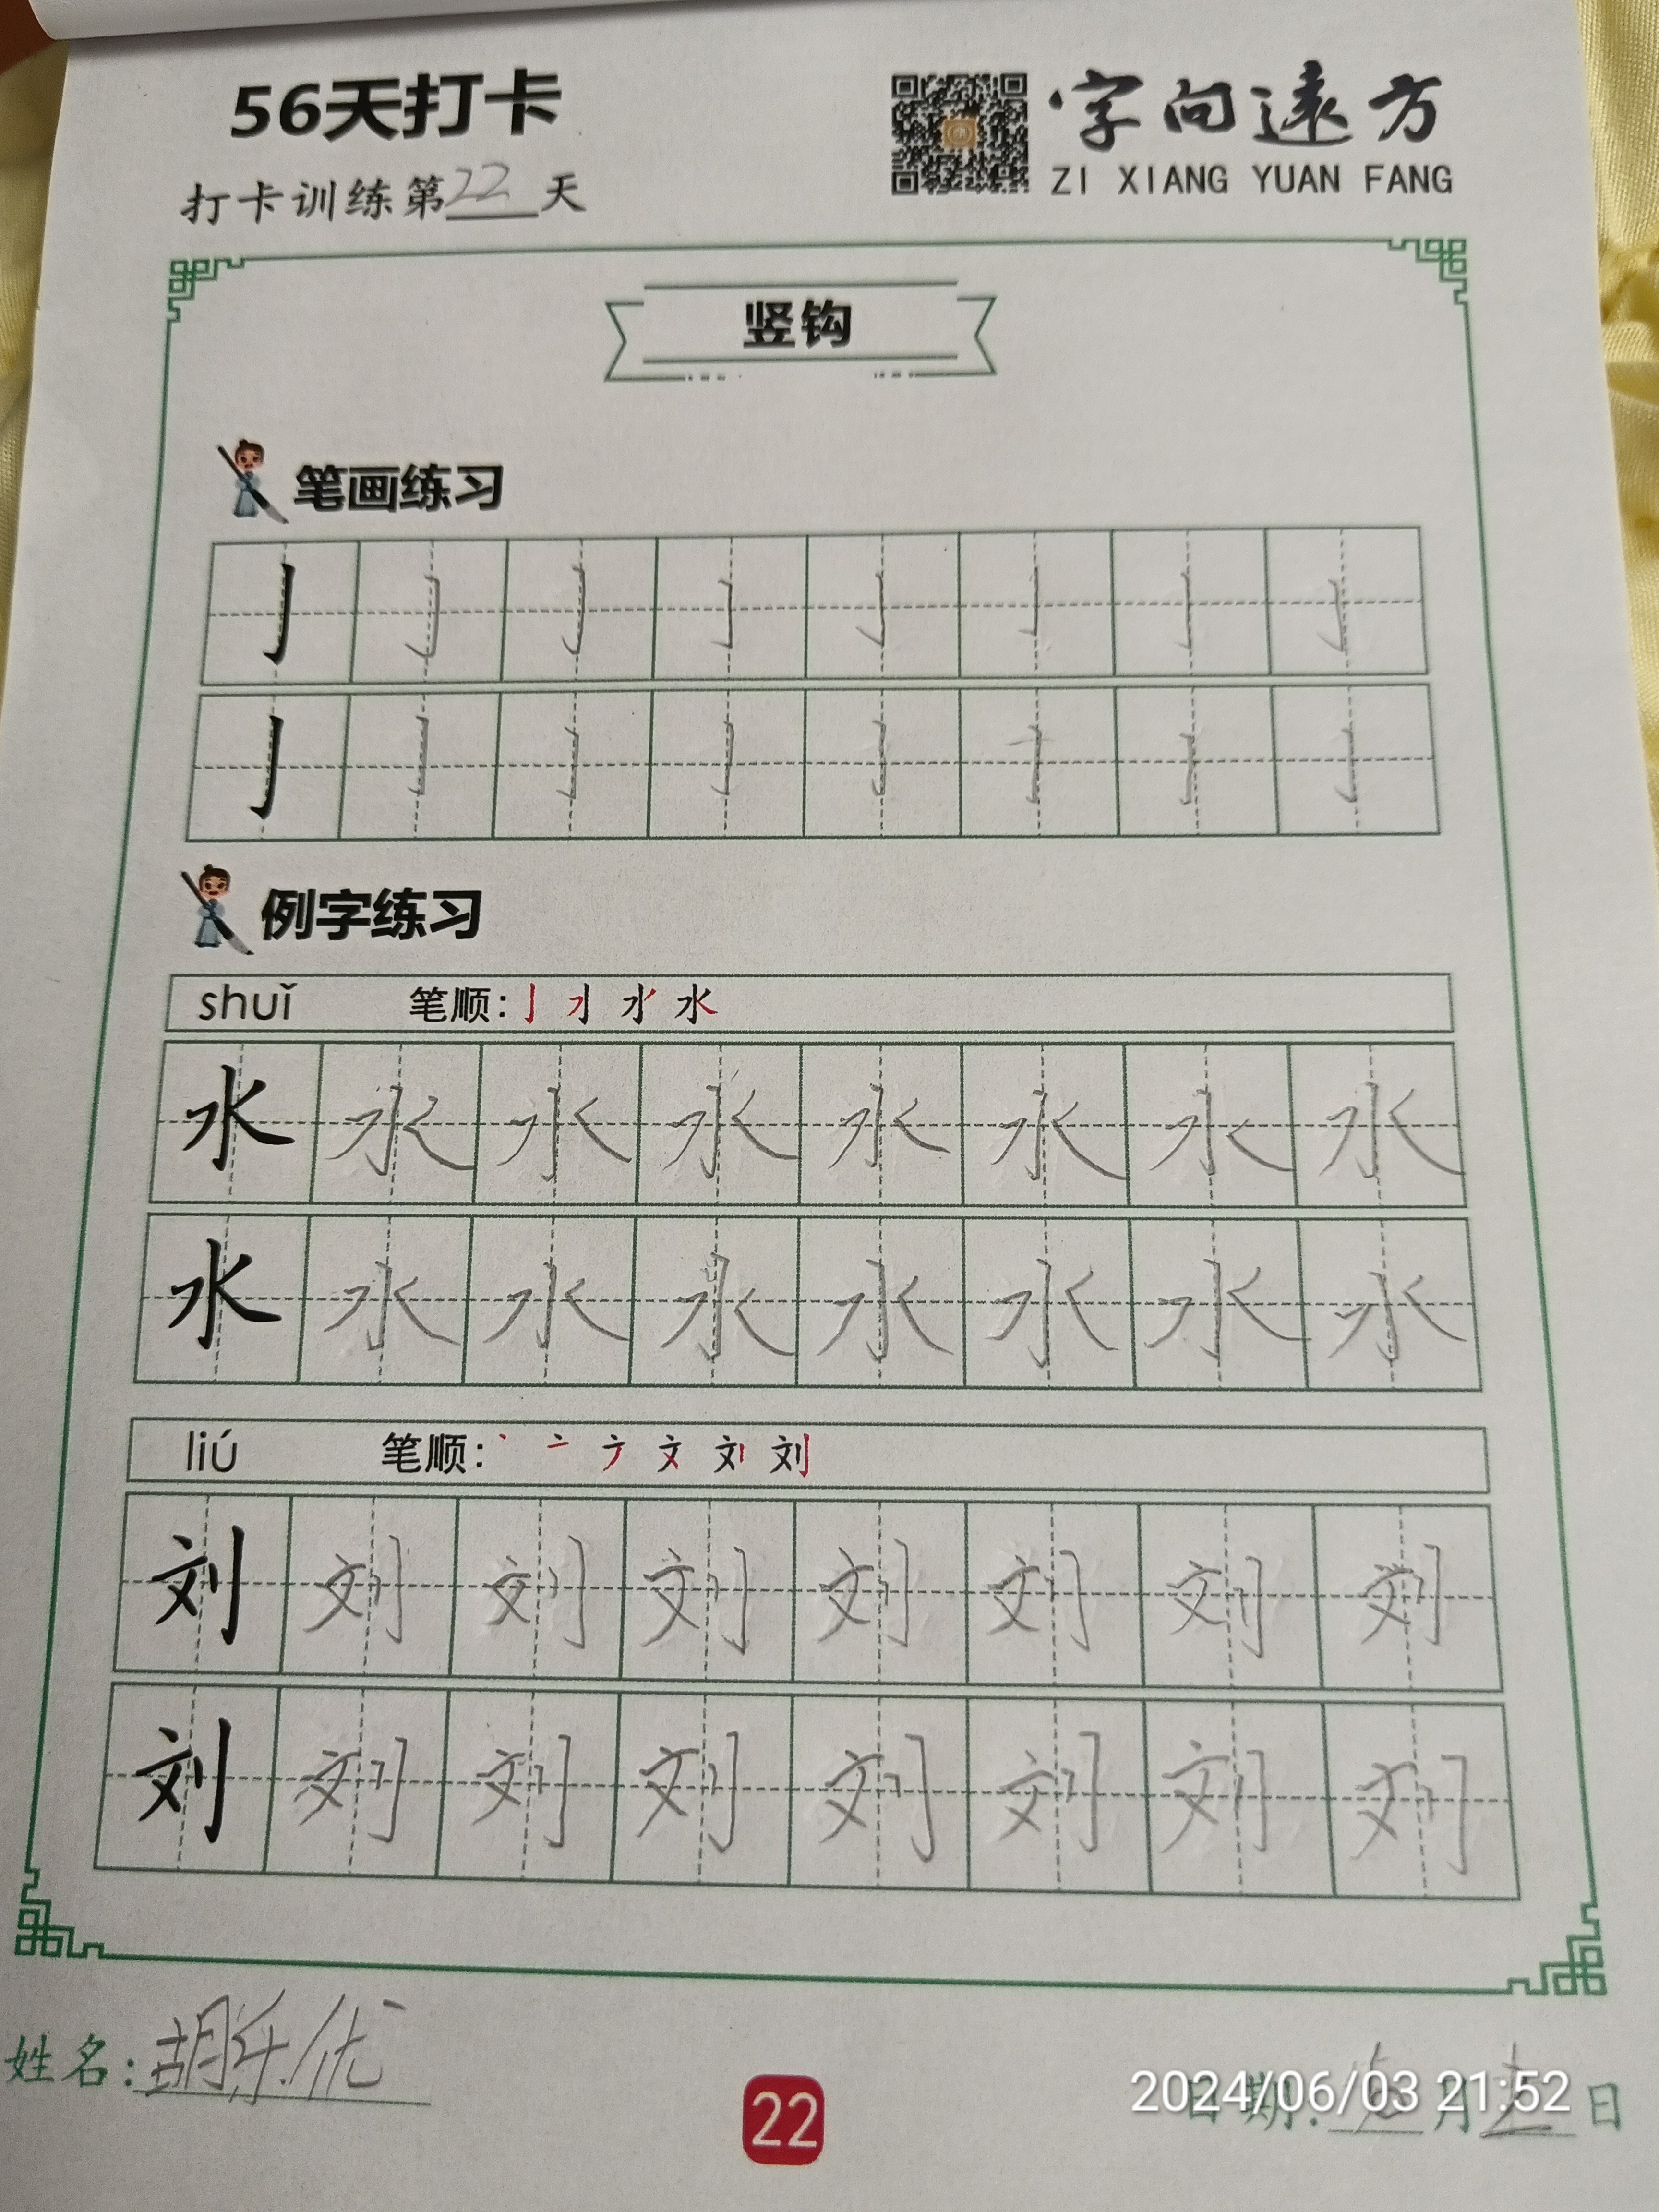 56天打卡
字向远方
ZI XIANG YUAN FANG
打卡训练第22天
竖钩
笔画练习
亅 亅 亅 亅 亅 亅 亅 亅
亅 亅 亅 亅 亅 亅 亅 亅
例字练习
shuǐ 笔顺: 水
水 水 水 水 水 水 水 水
水 水 水 水 水 水 水 水
liú 笔顺: 丶 亠 文 刘
刘 刘 刘 刘 刘 刘 刘 刘
刘 刘 刘 刘 刘 刘 刘 刘
姓名:胡乐优
22
日期: 月 日
2024/06/03 21:52